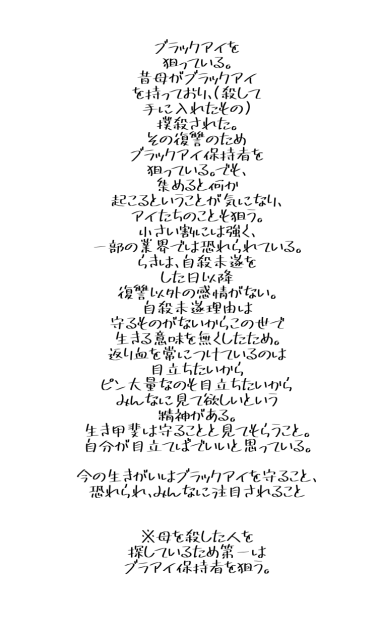 ブラックアイを
狙っている。
昔母がブラックアイ
を持っており、(殺して
手に入れたもの)
撲殺された。
その復讐のため
ブラックアイ保持者を
狙っている。でも、
集めると何か
起こるということが気になり、
アイたちのことも狙う。
小さい割には強く、
一部の業界では恐れられている。
らきは、自殺未遂を
した日以降
復讐以外の感情がない。
自殺未遂理由は
守るものがないからこの世で
生きる意味を無くしたため。
返り血を常につけているのは
目立ちたいから
ピン大量なのも目立ちたいから
みんなに見て欲しいという
精神がある。
生き甲斐は守ることと見てもらうこと。
自分が目立てばでいいと思っている。
今の生きがいはブラックアイを守ること、
恐れられ、みんなに注目されること
※母を殺した人を
探しているため第一は
ブラアイ保持者を狙う。